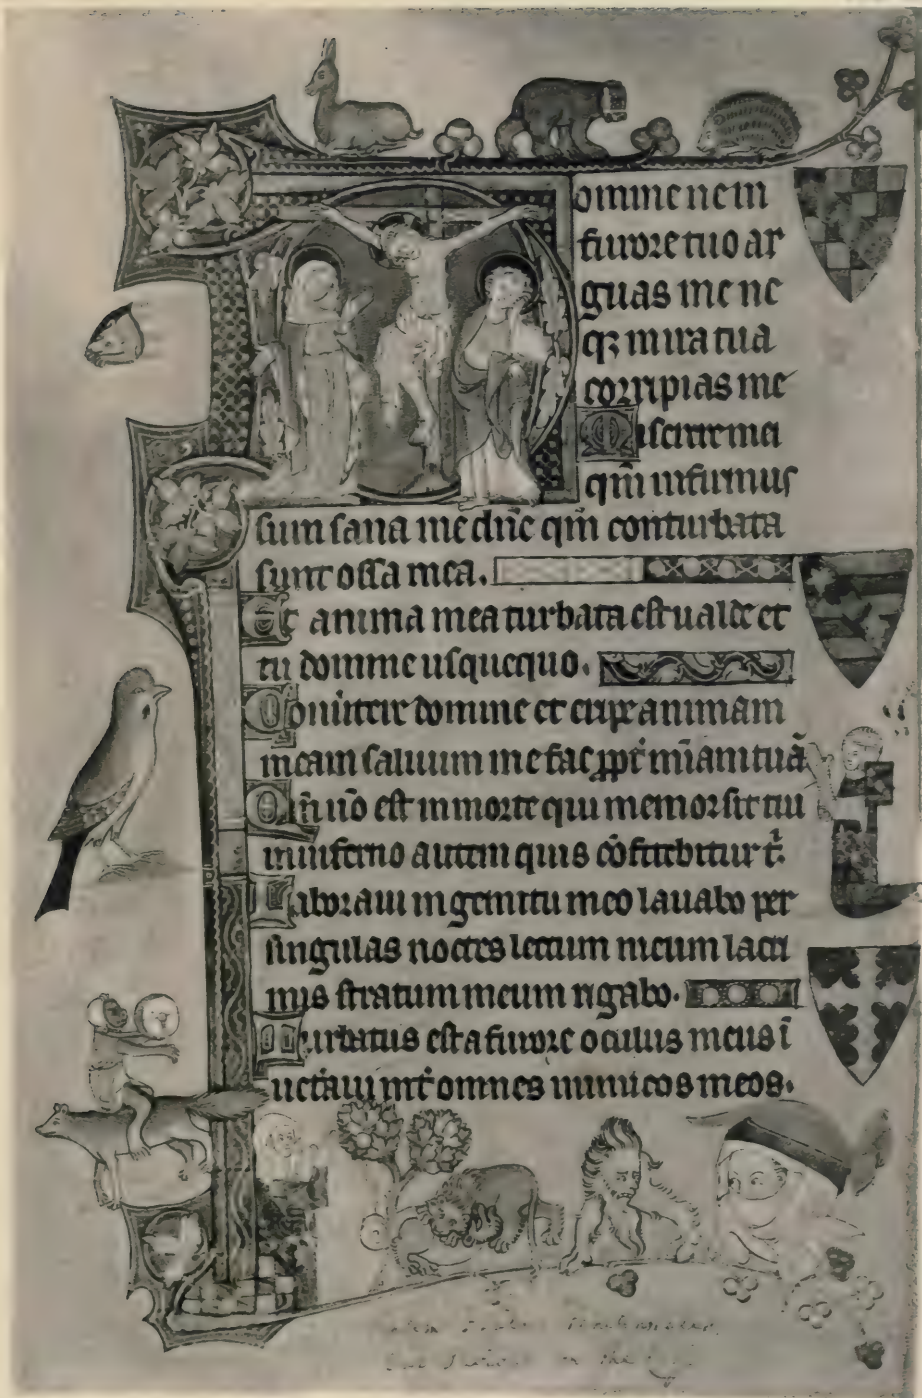 Domine ne in
furore tuo ar
guas me ne
qꝫ in ira tua
corripias me
Miserere mei
qm̄ infirmus
sum sana me dn̄e qm̄ conturbata
sunt ossa mea.
Et anima mea turbata est ualde et
tu domine usquequo.
Conũtere domine et eripe animam
meam saluum me fac ꝓpt̃ mĩam tuã
Qm̃ nõ est in morte qui memor sit tui
in inferno autem quis cõfitebitur t̃.
Laboraui in gemitu meo lauabo per
singulas noctes lectum meum lacri
mis stratum meum rigabo.
Turbatus est a furore oculus meus ĩ
uet̃aui int̃ omnes inimicos meos.